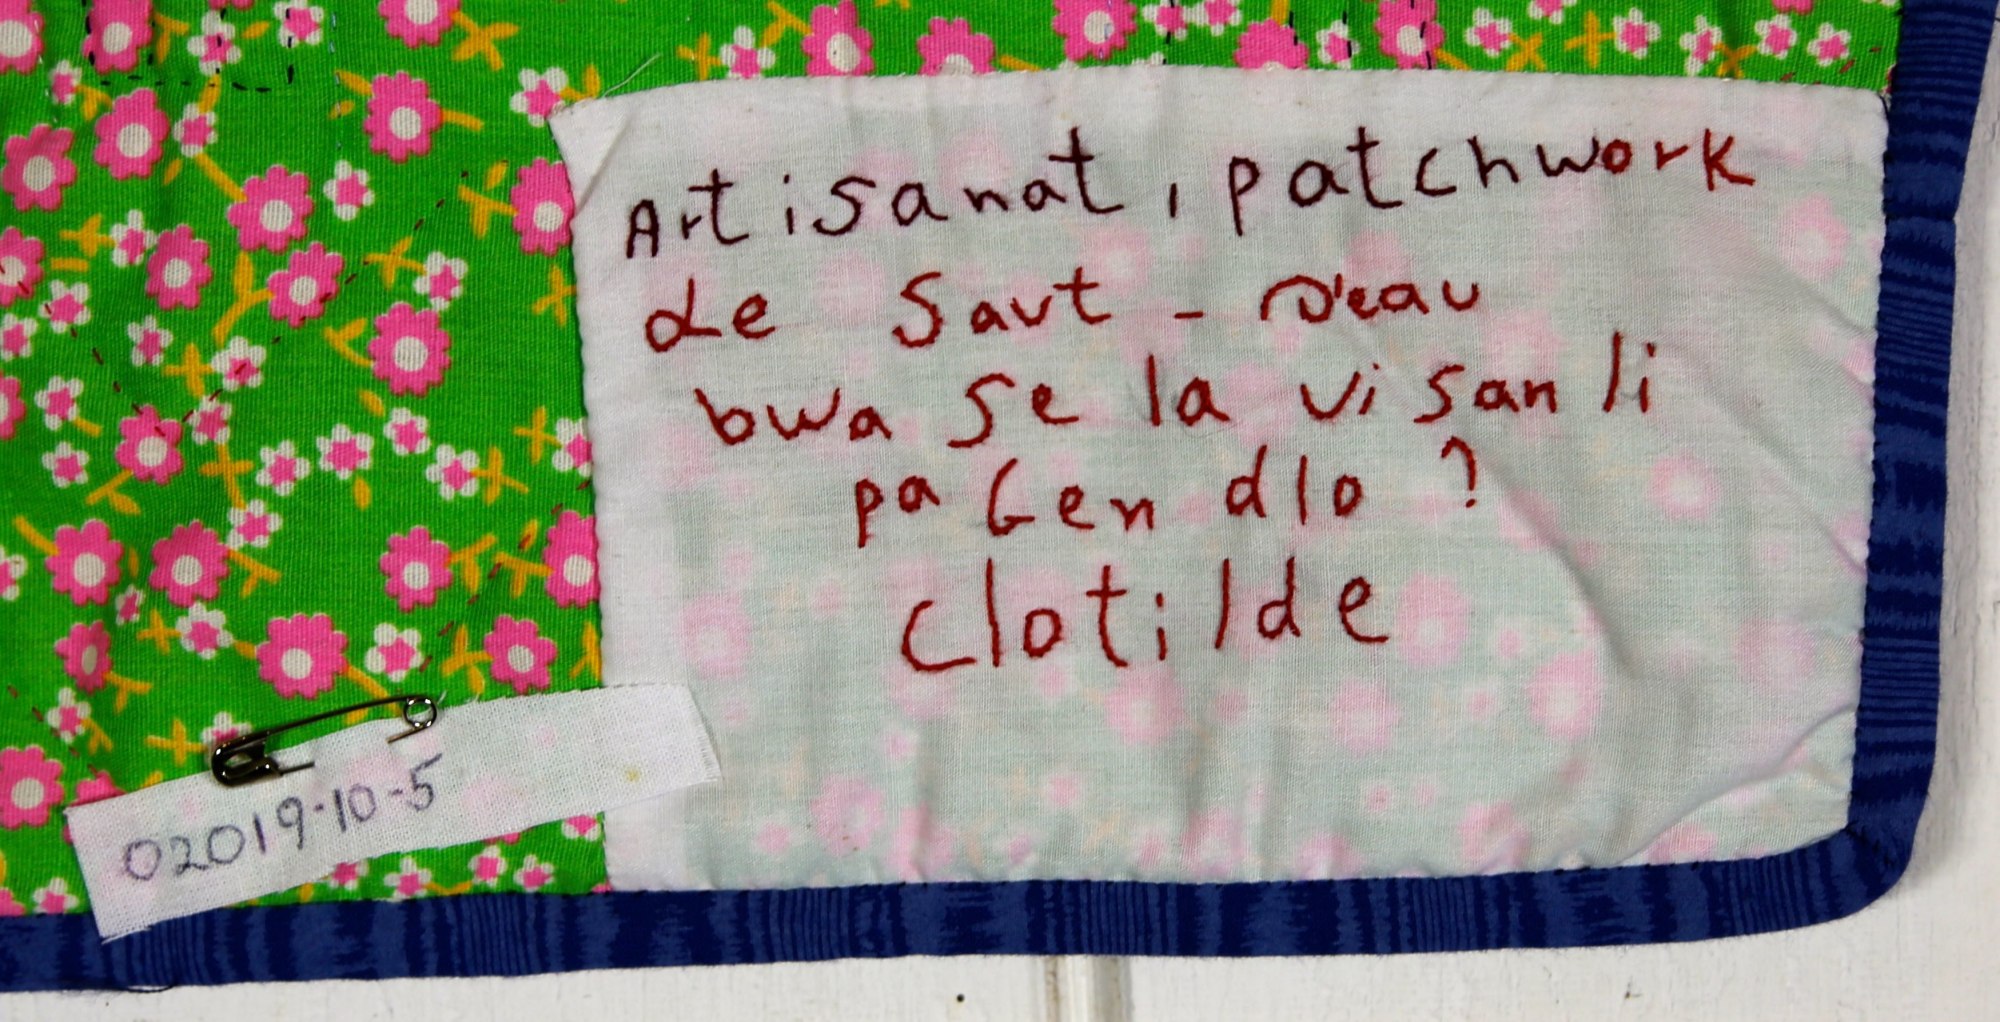 Artisanat, patchwork
de Saut-D'eau
bwa se la vi san li
pa Gen dlo?
Clotilde
02019-10-5